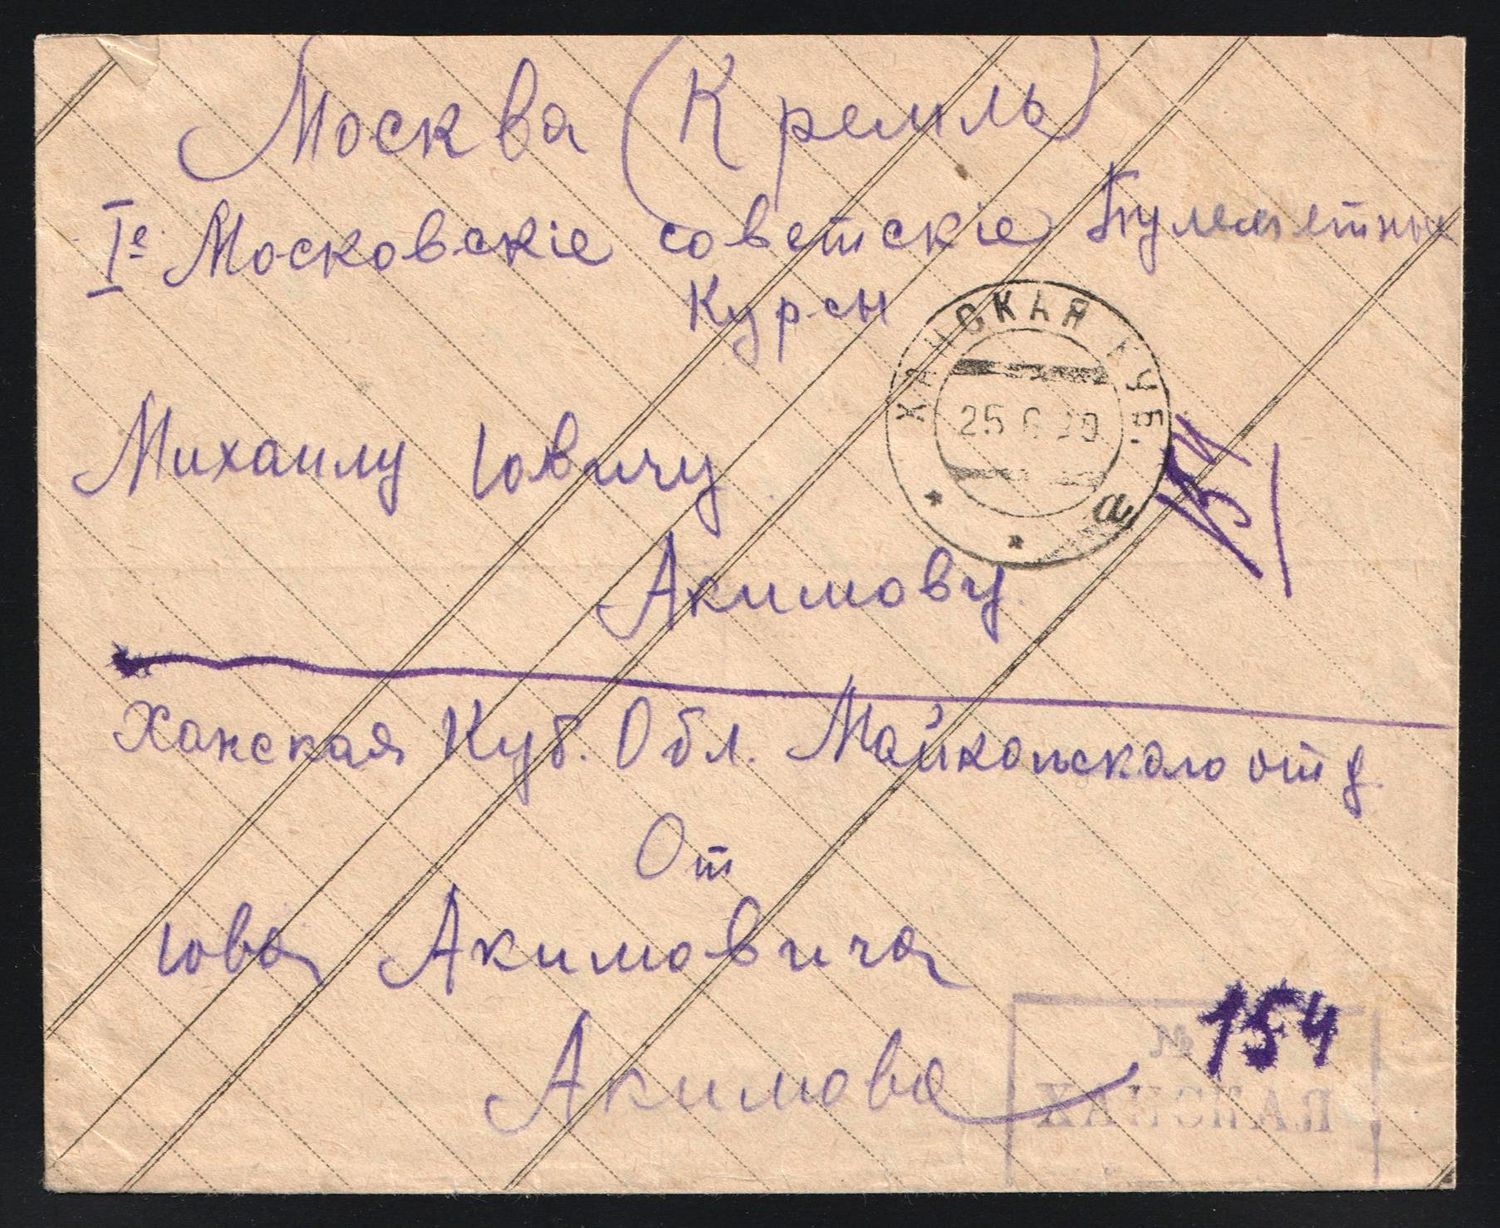 Москва (Кремль)
Iе Московскіе советскіе Пулеметные
Курсы
ХАНСКАЯ КУБ.
25 6 20
а
Михаилу Іовичу
Акимову
154
Ханская Куб. Обл. Майкопскаго отд.
От
Іова Акимовича
Акимова
№ 154
ХАНСКАЯ